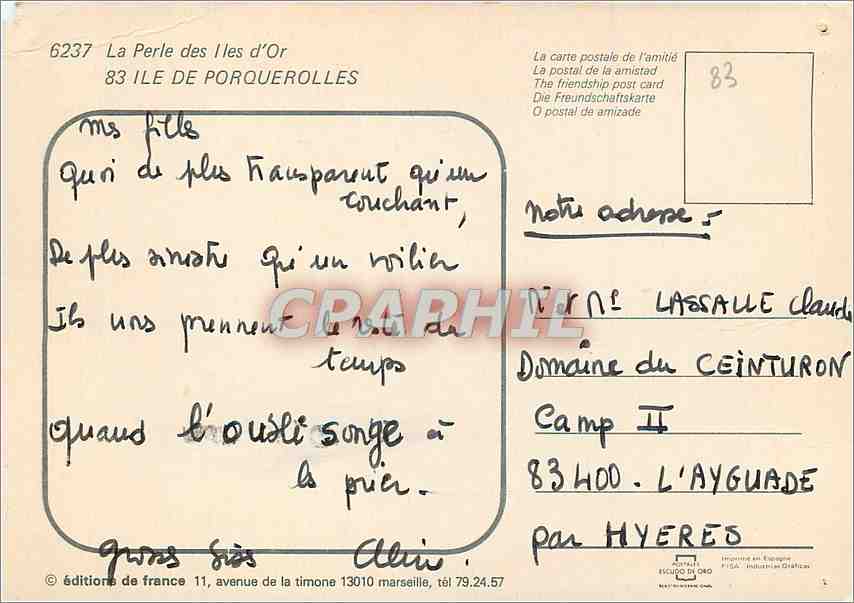 6237 La Perle des Iles d'Or
83 ILE DE PORQUEROLLES
La carte postale de l'amitié
La postal de la amistad
The friendship post card
Die Freundschaftskarte
O postal de amizade
83
Mes filles
Quoi de plus transparent qu'un
couchant,
De plus sinistre qu'un voilier
Ils nous prennent le reste du
temps
quand l'oubli songe à
les prier.
grosses bises
notre adresse :
LASSALLE Claude
Domaine du CEINTURON
Camp II
83400. L'AYGUADE
par HYERES
CPARPHIL
© éditions de france 11, avenue de la timone 13010 marseille, tél 79.24.57
POSTALES
ESCUDO DE ORO
Imprimé en Espagne
FISA Industrias Gráficas